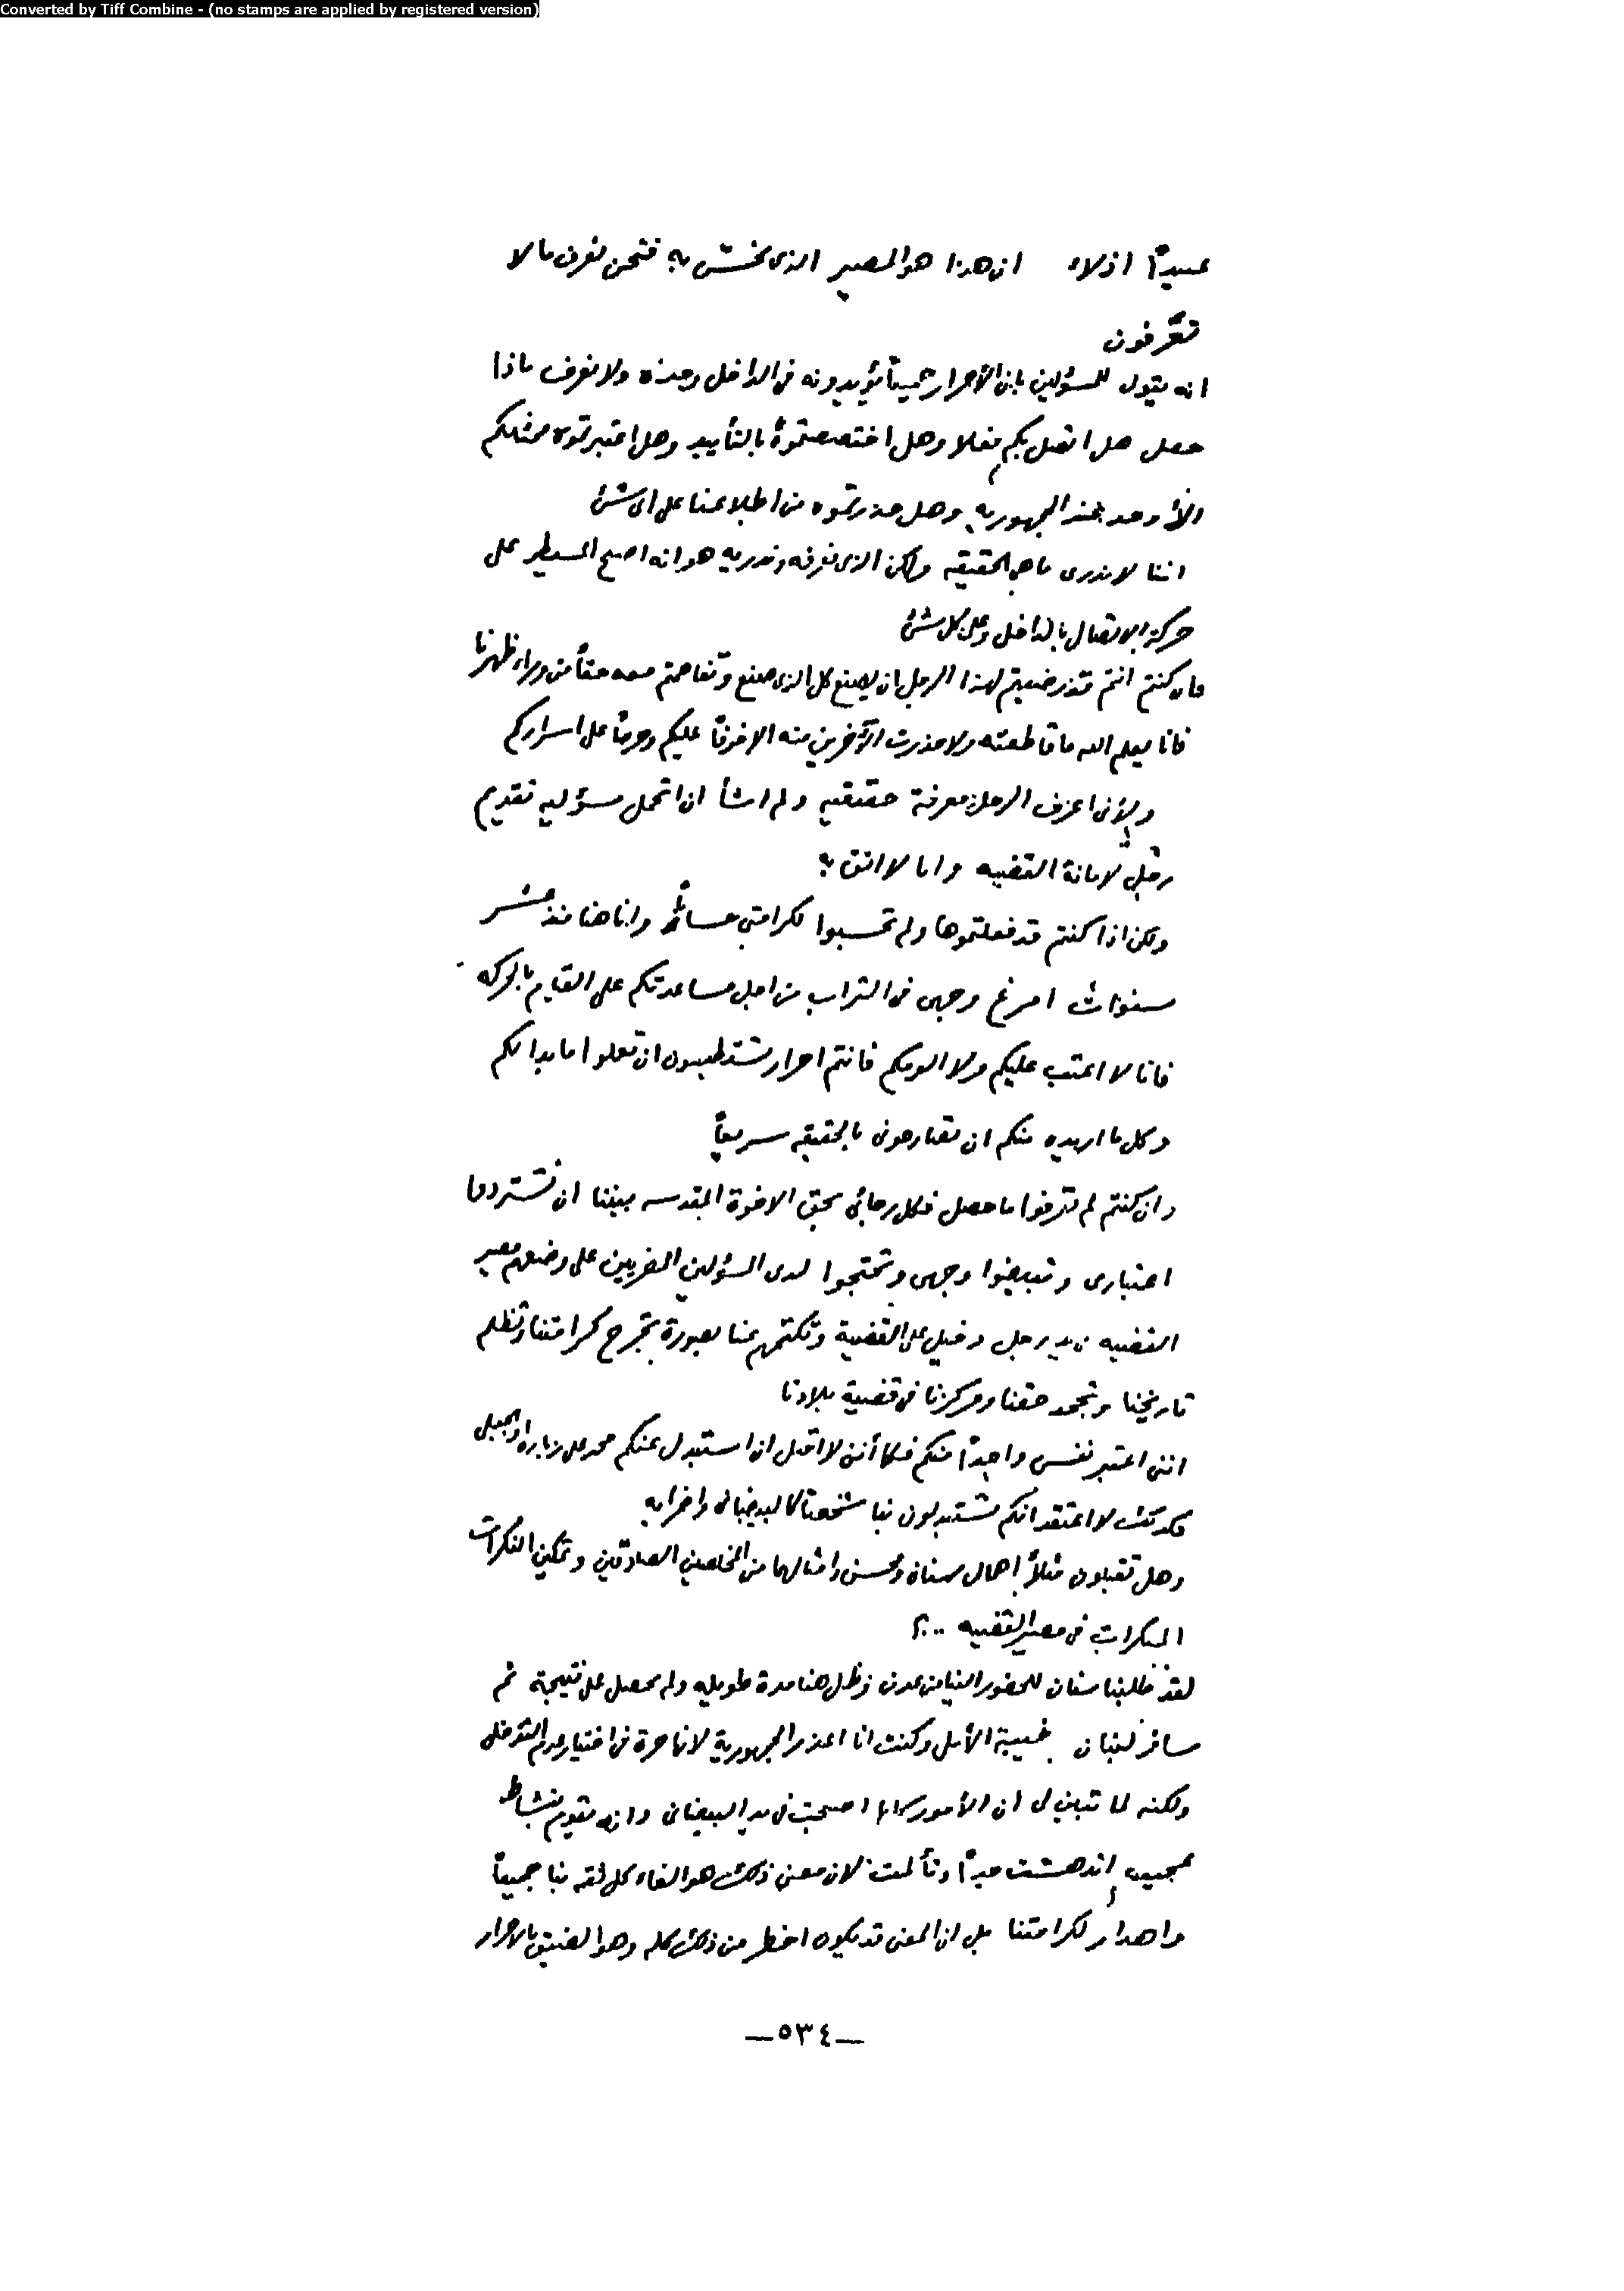 Converted by Tiff Combine - (no stamps are applied by registered version)
عبيداً اذلاء ان هذا هو المصير الذى نخشى به فنحن نعرف ما لا
تعرفون
انه يقول للمسؤلين بان الأحرار جميعاً يؤيدونه فى الداخل وحده ولا نعرف ماذا
حصل هل اتصل بكم فعلا وهل اختصصتموه بالتأييد وهل اعتبرتموه ممثلكم
الأوحد عند الجمهوريه وهل حذرتموه من اطلاعنا على اى شئ
اننا لا ندرى ما هى الحقيقه ولكن الذى نعرفه وندريه هو انه اصبح المسيطر على
حركة الاتصال بالداخل وعلى كل شئ
فان كنتم انتم قد رضيتم لهذا الرجل ان يصنع كل الذى صنع وتفاهمتم معه حقاً من وراء ظهرنا
فانا يعلم الله ما قاطعته ولا حذرت الآخرين منه الا خوفاً عليكم وحرصاً على اسراركم
ولأنى اعرف الرجل معرفة حقيقيه ولم اشأ ان اتحمل مسؤليه تقديم
رجل لامانة القضيه وانا لا اثق به
ولكن اذا كنتم قد فعلتموها ولم تحسبوا لكرامتى حساباً وانا هنا منذ عشر
سنوات امرغ وجهى فى التراب من اجل مساعدتكم على القيام بالحركه
فانا لا اعتب عليكم ولا الومكم فانتم احرار تستطيعون ان تعملوا ما بدا لكم
وكل ما اريده منكم ان تصارحونى بالحقيقه سريعاً
وان كنتم لم تعرفوا ما حصل فكل رجائى بحق الاخوة المقدسه بيننا ان تستردوا
اعتبارى وتبيضوا وجهى وتحتجوا لدى المسؤلين المصريين على وضعهم مصير
القضيه فى يد رجل دخيل على القضية وتكتمهم عنا بصورة تجرح كرامتنا وتظلم
تاريخنا وتجحد حقنا ومركزنا فى قضية بلادنا
اننى اعتبر نفسى واحداً منكم فكما أننى لا اقبل ان استبدل عنكم محمد على زباره او الجبلى
فكذلك لا اعتقد انكم تستبدلون بنا شخصاً كالبيضانى واضرابه
وهل تقبلون مثلاً اهمال سنان ومحسن وامثالهما من المخلصين الصادقين وتمكين النكرات
المنكرات فى مصير القضيه ..؟
لقد طلبنا سنان للحضور الينا من عدن وظل هنا مدة طويله ولم يحصل على نتيجة ثم
سافر لبنان بخيبة الأمل وكنت انا اعذر الجمهورية لانها حرة فى اختيار عدم التدخل
ولكنه لما تبين لى ان الأمور كلها اصبحت فى يد البيضانى وانه يقوم بنشاط
عجيب اندهشت جداً وتألمت لان معنى ذلك هو الغاء كل ثقه بنا جميعاً
واهدار لكرامتنا بل ان المعنى قد يكون اخطر من ذلك كله وهو الضيق بالاحرار
—٥٣٤—